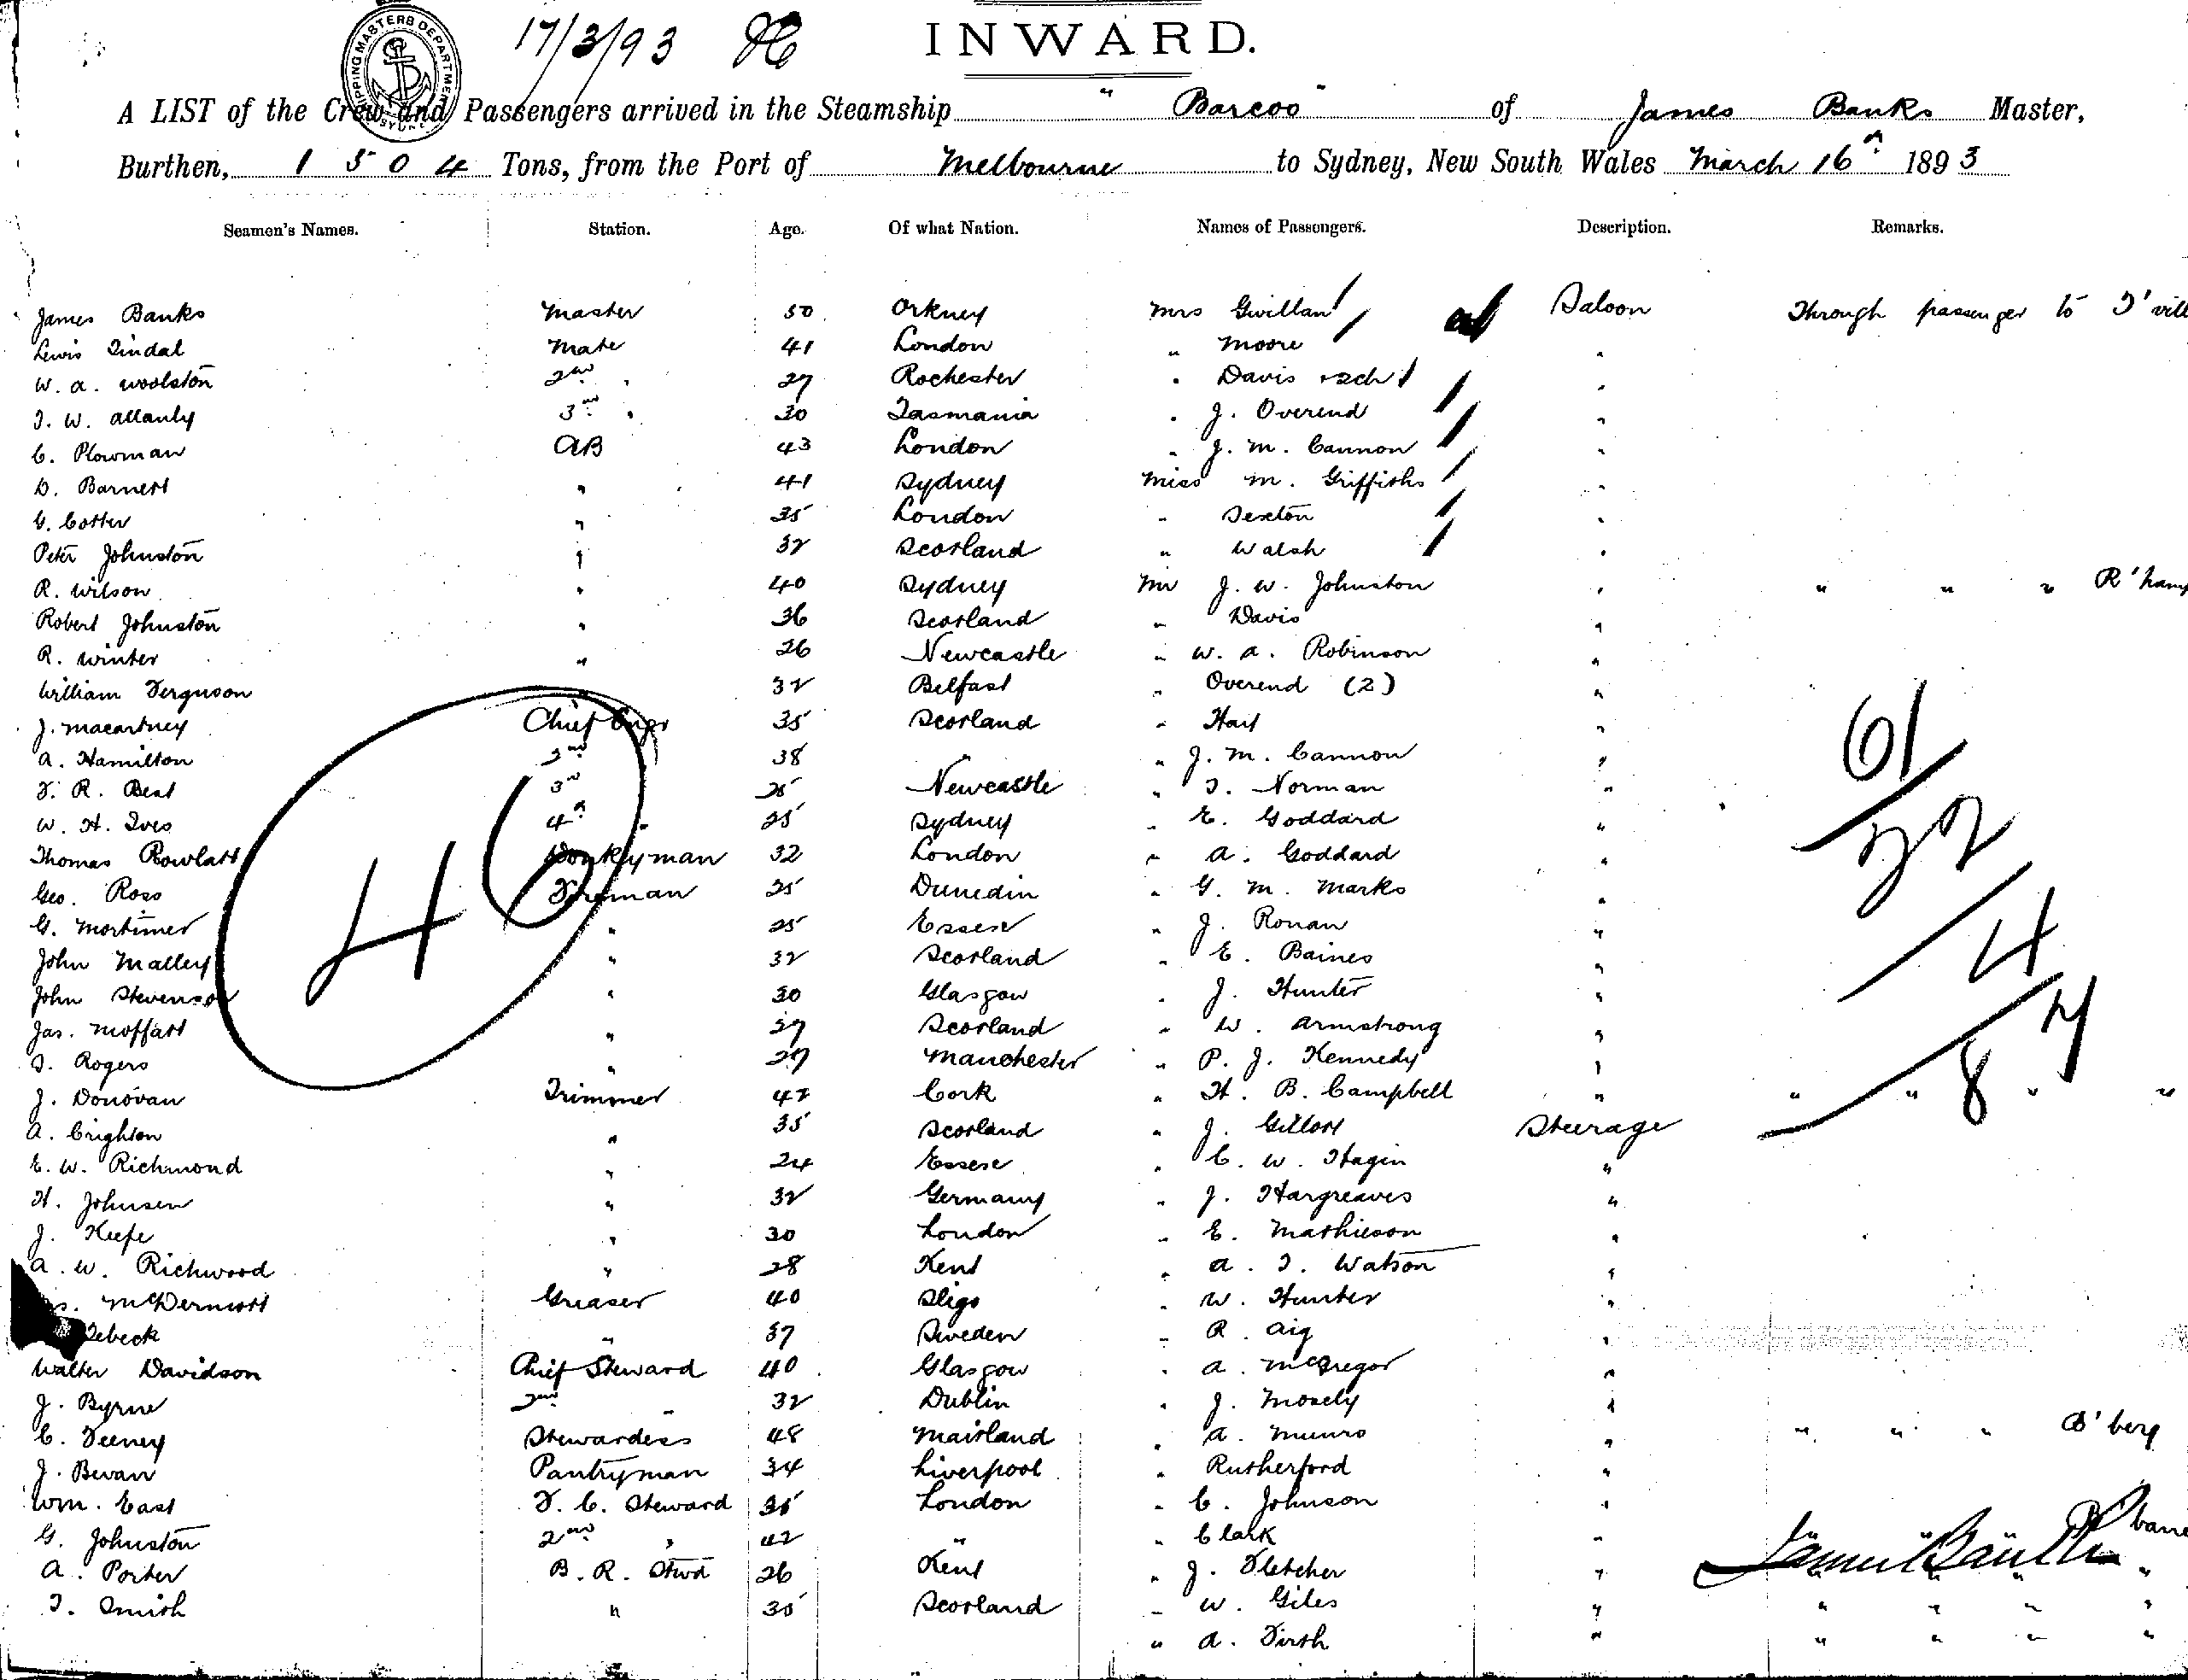 17/3/93
INWARD.
SHIPPING MASTERS DEPARTMENT SYDNEY
A LIST of the Crew and Passengers arrived in the Steamship "Barcoo" of James Banks Master,
Burthen, 1504 Tons, from the Port of Melbourne to Sydney, New South Wales March 16th 1893
Seamen's Names. Station. Age. Of what Nation. Names of Passengers. Description. Remarks.
James Banks Master 50 Orkney Mrs Gwillan Saloon Through passenger to T'vill
Lewis Tindal Mate 41 London " Moore "
W. A. Woolston 2nd " 27 Rochester " Davis + 2ch "
T. W. Allanby 3rd " 30 Tasmania " J. Overend "
C. Plowman AB 43 London " J. M. Cannon "
D. Barnett " 41 Sydney Miss M. Griffiths "
C. Cotter " 35 London " Sexton "
Peter Johnston " 32 Scotland " Walsh "
R. Wilson " 40 Sydney Mr J. W. Johnston " " " " R'hamp
Robert Johnston " 36 Scotland " Davis "
R. Winter " 26 Newcastle " W. A. Robinson "
William Ferguson " 32 Belfast " Overend (2) "
J. Macartney Chief Engr 35 Scotland " Hay "
A. Hamilton 2nd 38 " " J. M. Cannon "
F. R. Best 3rd 25 Newcastle " T. Norman "
W. H. Ives 4th " 25 Sydney " E. Goddard "
Thomas Rowlatt Donkeyman 32 London " A. Goddard "
Geo. Ross Fireman 25 Dunedin " G. M. Marks "
G. Mortimer " 25 Essex " J. Ronan "
John Malley " 32 Scotland " E. Baines "
John Stevenson " 30 Glasgow " J. Hunter "
Jas. Moffatt " 27 Scotland " W. Armstrong "
T. Rogers " 27 Manchester " P. J. Kennedy "
J. Donovan Trimmer 42 Cork " H. B. Campbell " " " " "
A. Crighton " 35 Scotland " J. Steerage
E. W. Richmond " 24 Essex " C. W. Hagin "
H. Johnsen " 32 Germany " J. Hargreaves "
J. Keefe " 30 London " E. Mathieson "
A. W. Richwood " 28 Kent " A. T. Watson "
McDermott Greaser 40 Sligo " W. Hunter "
" 37 Sweden " R. Aig "
Walter Davidson Chief Steward 40 Glasgow " A. McGregor "
J. Byrne 2nd " 32 Dublin " J. Mosely "
C. Feeney Stewardess 48 Maitland " A. Munro " " " " B'berg
J. Bevan Pantryman 34 Liverpool " Rutherford "
Wm. East F. C. Steward 35 London " C. Johnson "
G. Johnston 2nd " 42 " " Clark " B'bane
A. Porter B. R. Stwd 26 Kent " J. Fletcher " " " " "
T. Smith " 35 Scotland " W. Giles " " " " "
" A. Firth " " " " "
James Banks
61
22
4
87